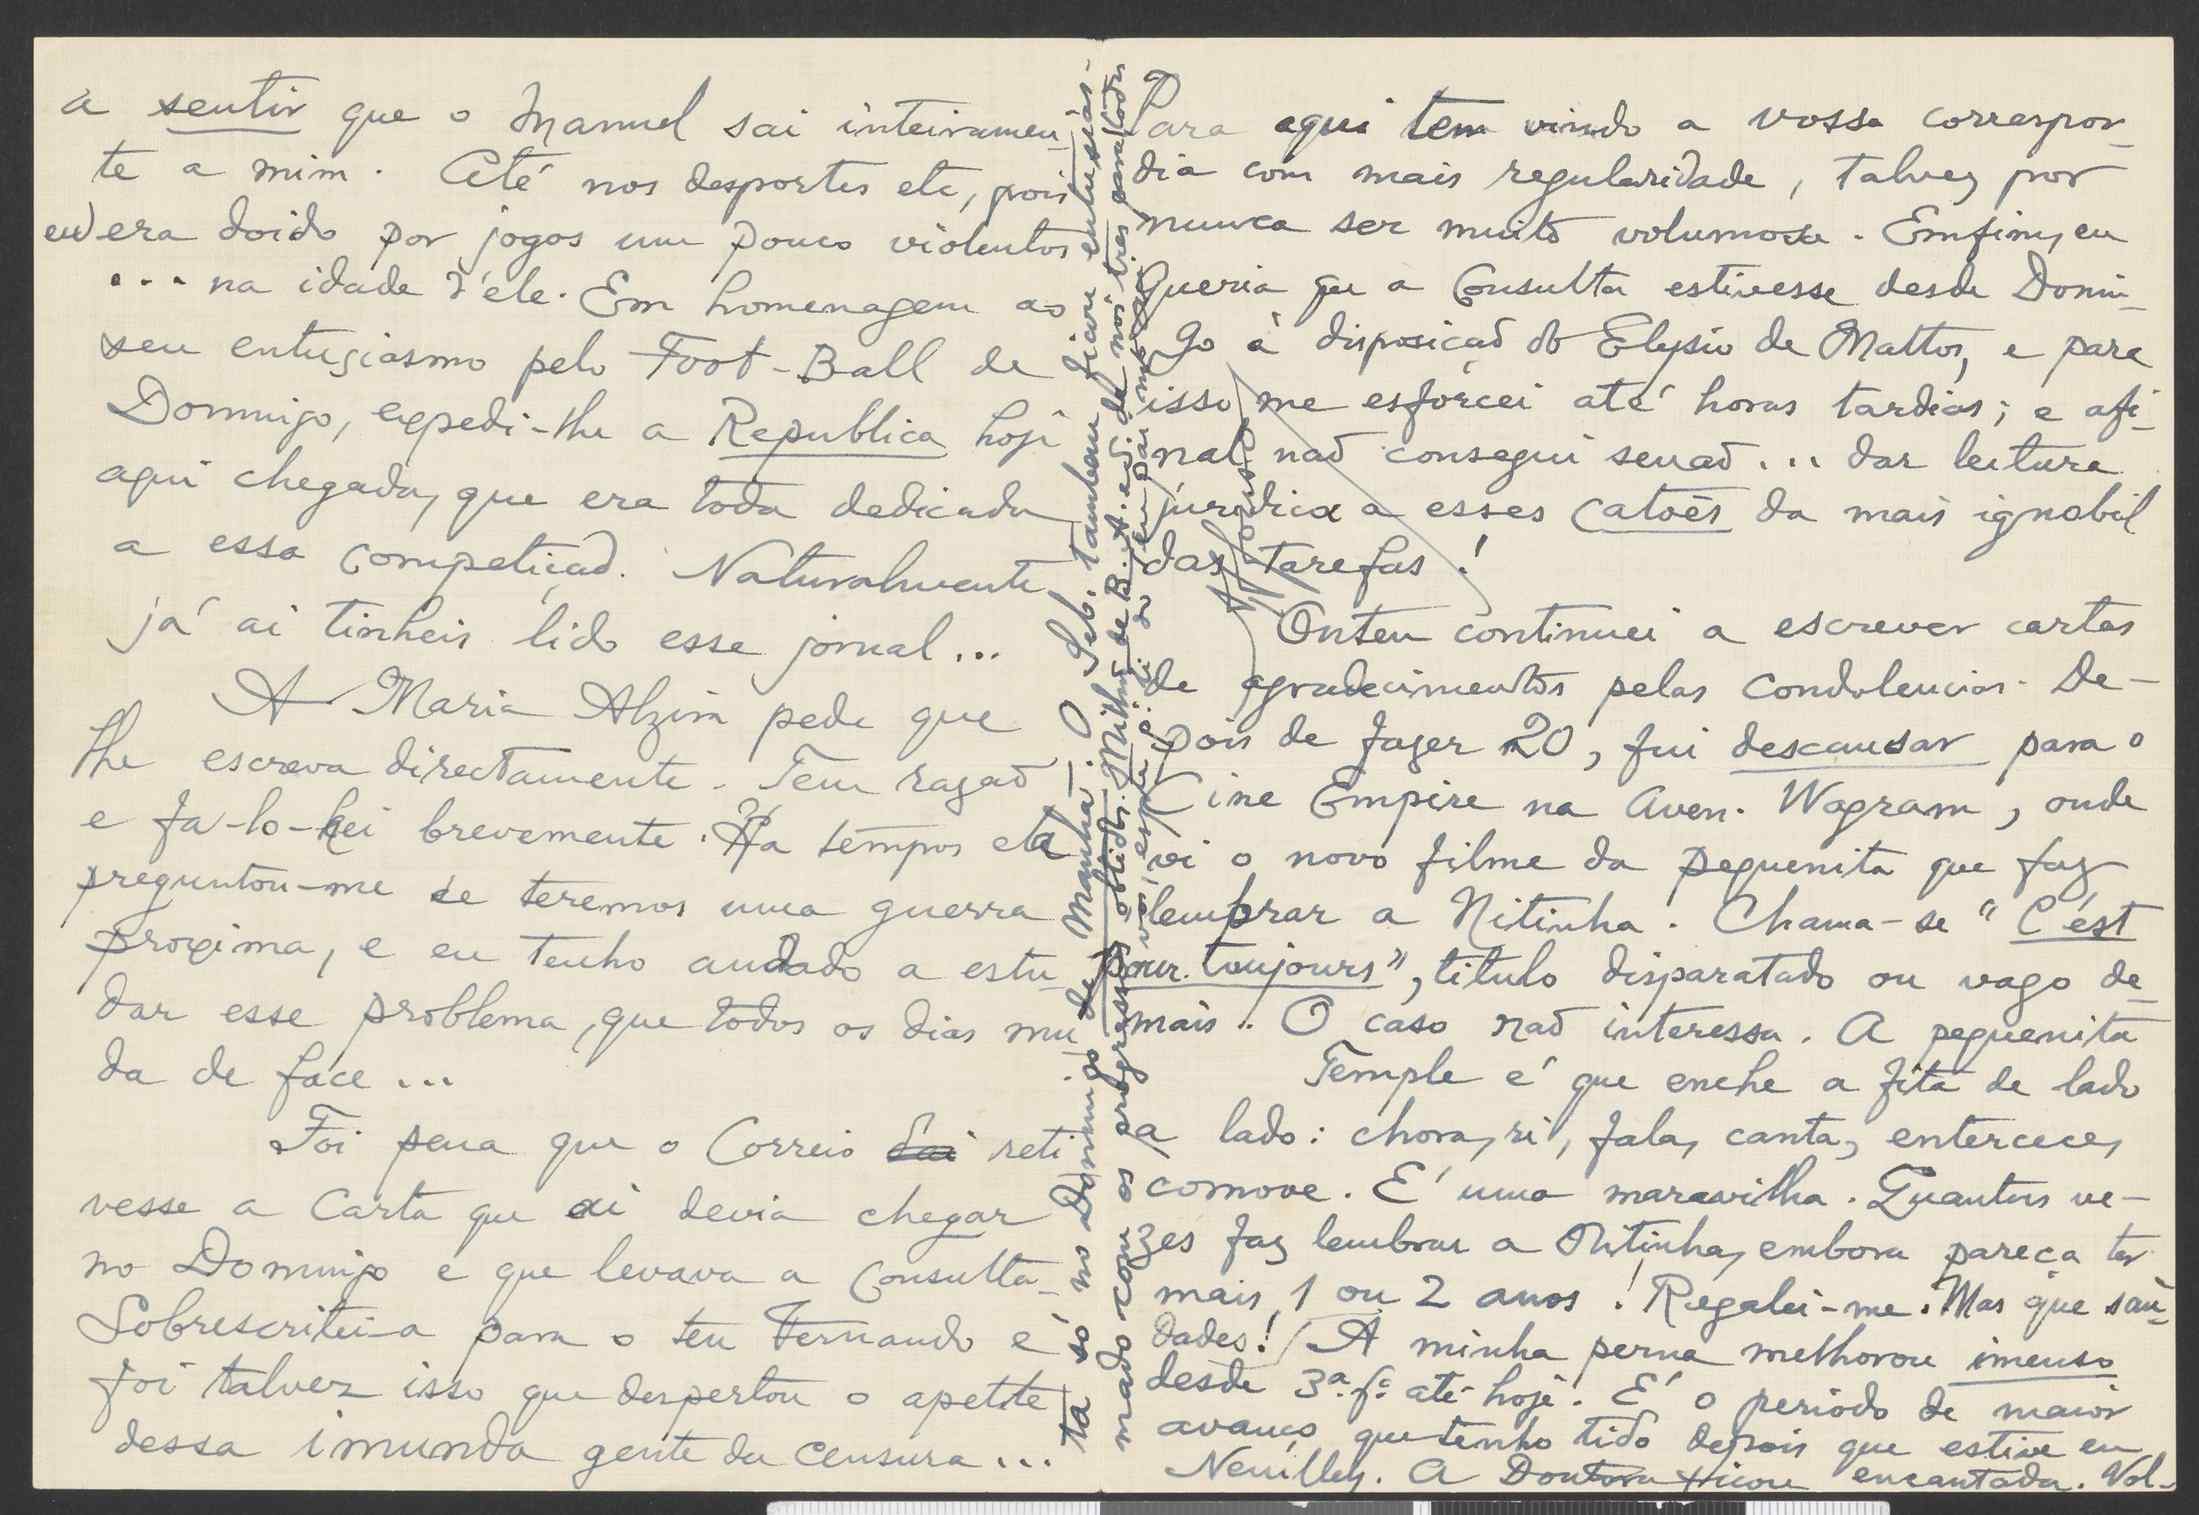 a sentir que o Manuel sai inteiramen-
te a mim. Até nos desportes etc, pois
eu era doido por jogos um pouco violentos
... na idade d'ele. Em homenagem ao
seu entusiasmo pelo Foot-Ball de
Domingo, expedi-lhe a Republica hoje
aqui chegada, que era toda dedicada
a essa competição. Naturalmente
já aí tinheis lido esse jornal...
A Maria Alzira pede que
lhe escreva directamente. Tem razão
e fa-lo-hei brevemente. Ha tempos ela
preguntou-me se teremos uma guerra
proxima, e eu tenho andado a estu-
dar esse problema, que todos os dias mu
da de face...
Foi pena que o Correio reti
vesse a Carta que aí devia chegar
no Domingo e que levava a Consulta.
Sobrescritei-a para o teu Fernando e
foi talvez isso que despertou o apetite
dessa imunda gente da censura...
Para aqui tem vindo a vossa correspon-
dia com mais regularidade, talvez por
nunca ser muito volumosa. Emfim, eu
queria que a Consulta estivesse desde Domin-
go á disposição do Elysio de Mattos, e para
isso me esforcei até horas tardias; e afi-
nal não consegui senão... dar leitura
juridica a esses Catões da mais ignobil
das tarefas!
Ontem continuei a escrever cartas
de agradecimentos pelas condolencias. De-
pois de fazer 20, fui descansar para o
Cine Empire na Aven. Wagram, onde
vi o novo filme da pequenita que faz
lembrar a Nitinha. Chama-se "C'est
pour toujours", titulo disparatado ou vago de-
mais. O caso não interessa. A pequenita
Temple é que enche a fita de lado
a lado: chora, ri, fala, canta, entercece,
comove. E' uma maravilha. Quantas ve-
zes faz lembrar a Nitinha, embora pareça ter
mais 1 ou 2 anos! Regalei-me. Mas que sau-
dades! A minha perna melhorou imenso
desde 3ª fª até hoje. E' o periodo de maior
avanço que tenho tido depois que estive em
Neuilley. A Doutora ficou encantada. Vol-
ta só no Domingo de Manhã. O Seb. tambem ficou entusias-
mado com os progressos obtidos. Milhões de B. e A. de nós tres para todos
vós,
Affonso